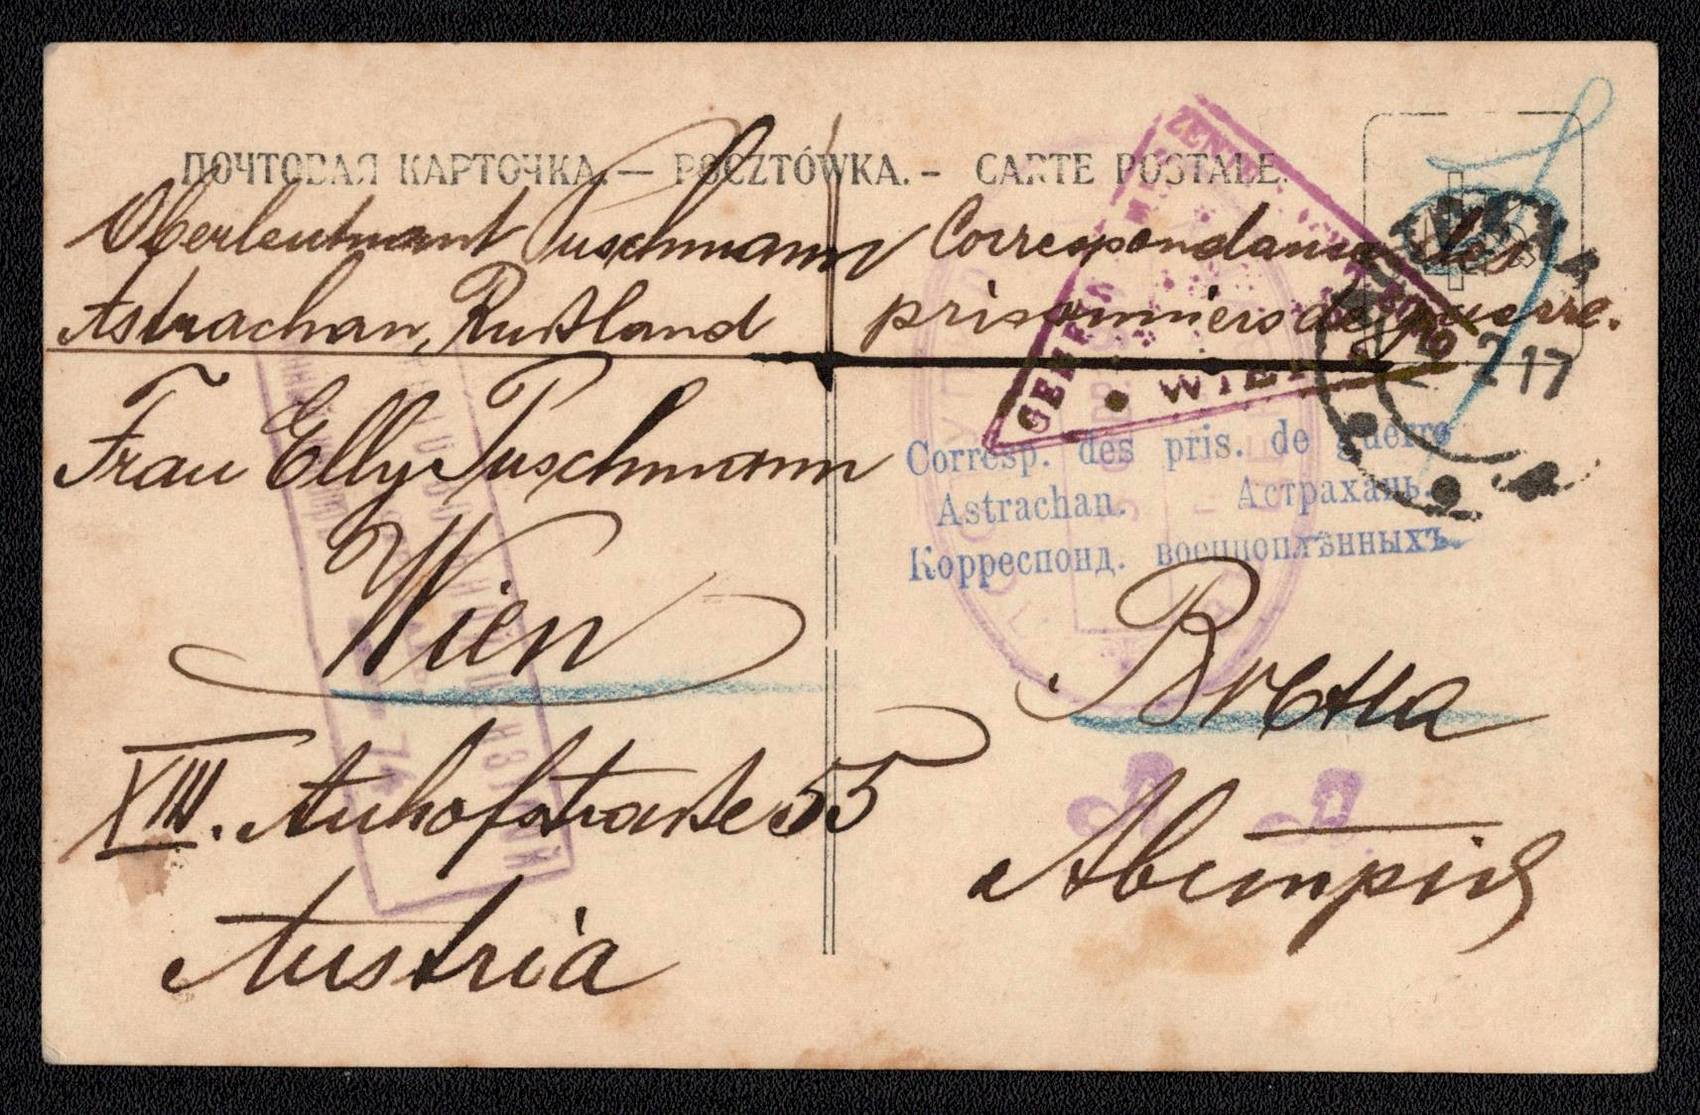 ПОЧТОВАЯ КАРТОЧКА. — POCZTÓWKA. – CARTE POSTALE.
Oberleutnant Tuschmann
Correspondance des
Astrachan, Rußland
prisonniers de guerre.
WIEN
2 17
Frau Elly Tuschmann
Corresp. des pris. de guerre
Astrachan. Астрахань.
Корреспонд. военноплѣнныхъ.
Wien
Вѣна
XIII. Auhofstraße 55
74
Австрія
Austria